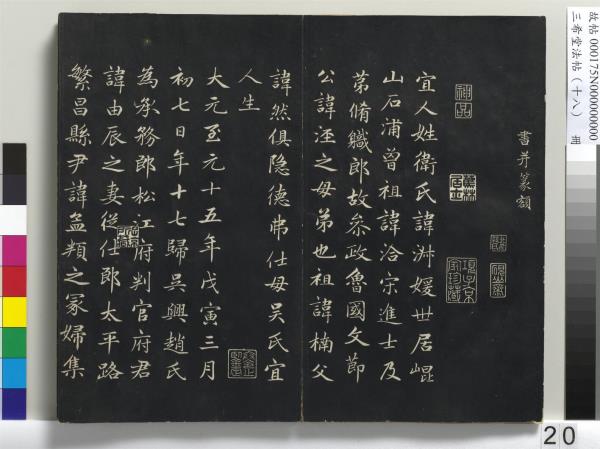 故帖 000175N000000000
三希堂法帖（十八） 冊
書并篆額
神品
宜人姓衛氏諱淑媛世居崐
山石浦曾祖諱洽宋進士及
第脩軄郎故叅政魯國文節
公諱涇之母弟也祖諱楠父
諱然俱隐德弗仕母吴氏宜
人生
大元至元十五年戊寅三月
初七日年十七歸吴興趙氏
為承務郎松江府判官府君
諱由辰之妻從仕郎太平路
繁昌縣尹諱孟頖之冢婦集
項子京
家珍藏
20